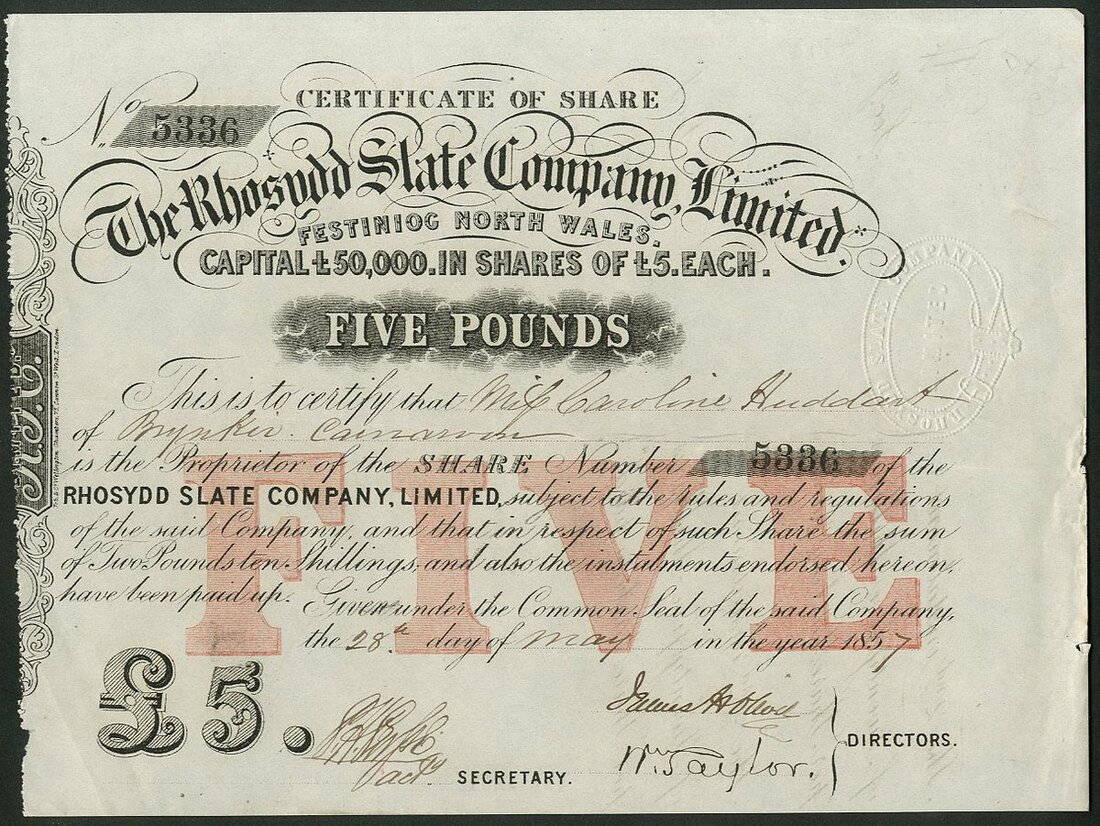 No. 5336
CERTIFICATE OF SHARE
The Rhosydd Slate Company, Limited.
FESTINIOG NORTH WALES.
CAPITAL £50,000. IN SHARES OF £5. EACH.
FIVE POUNDS
This is to certify that Miss Caroline Huddart
of Brynkir Carnarvon
is the Proprietor of the SHARE Number 5336 of the
RHOSYDD SLATE COMPANY, LIMITED, subject to the rules and regulations
of the said Company, and that in respect of such Share the sum
of Two Pounds ten Shillings, and also the instalments endorsed hereon,
have been paid up. Given under the Common Seal of the said Company,
the 28th day of May in the year 1857
FIVE
£5.
SECRETARY.
James
Wm Taylor.
DIRECTORS.
R.S.C.
SLATE COMPANY
LIMITED